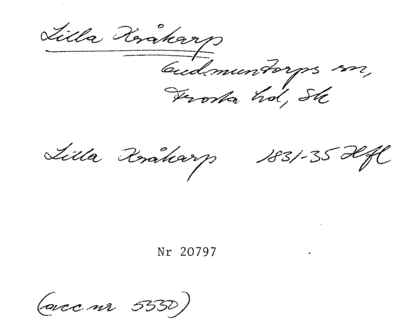 Lilla Kråkarp
Gudmuntorps sn,
Frosta hd, Sk
Lilla Kråkarp 1831-35 Hfl
Nr 20797
(acc nr 5330)